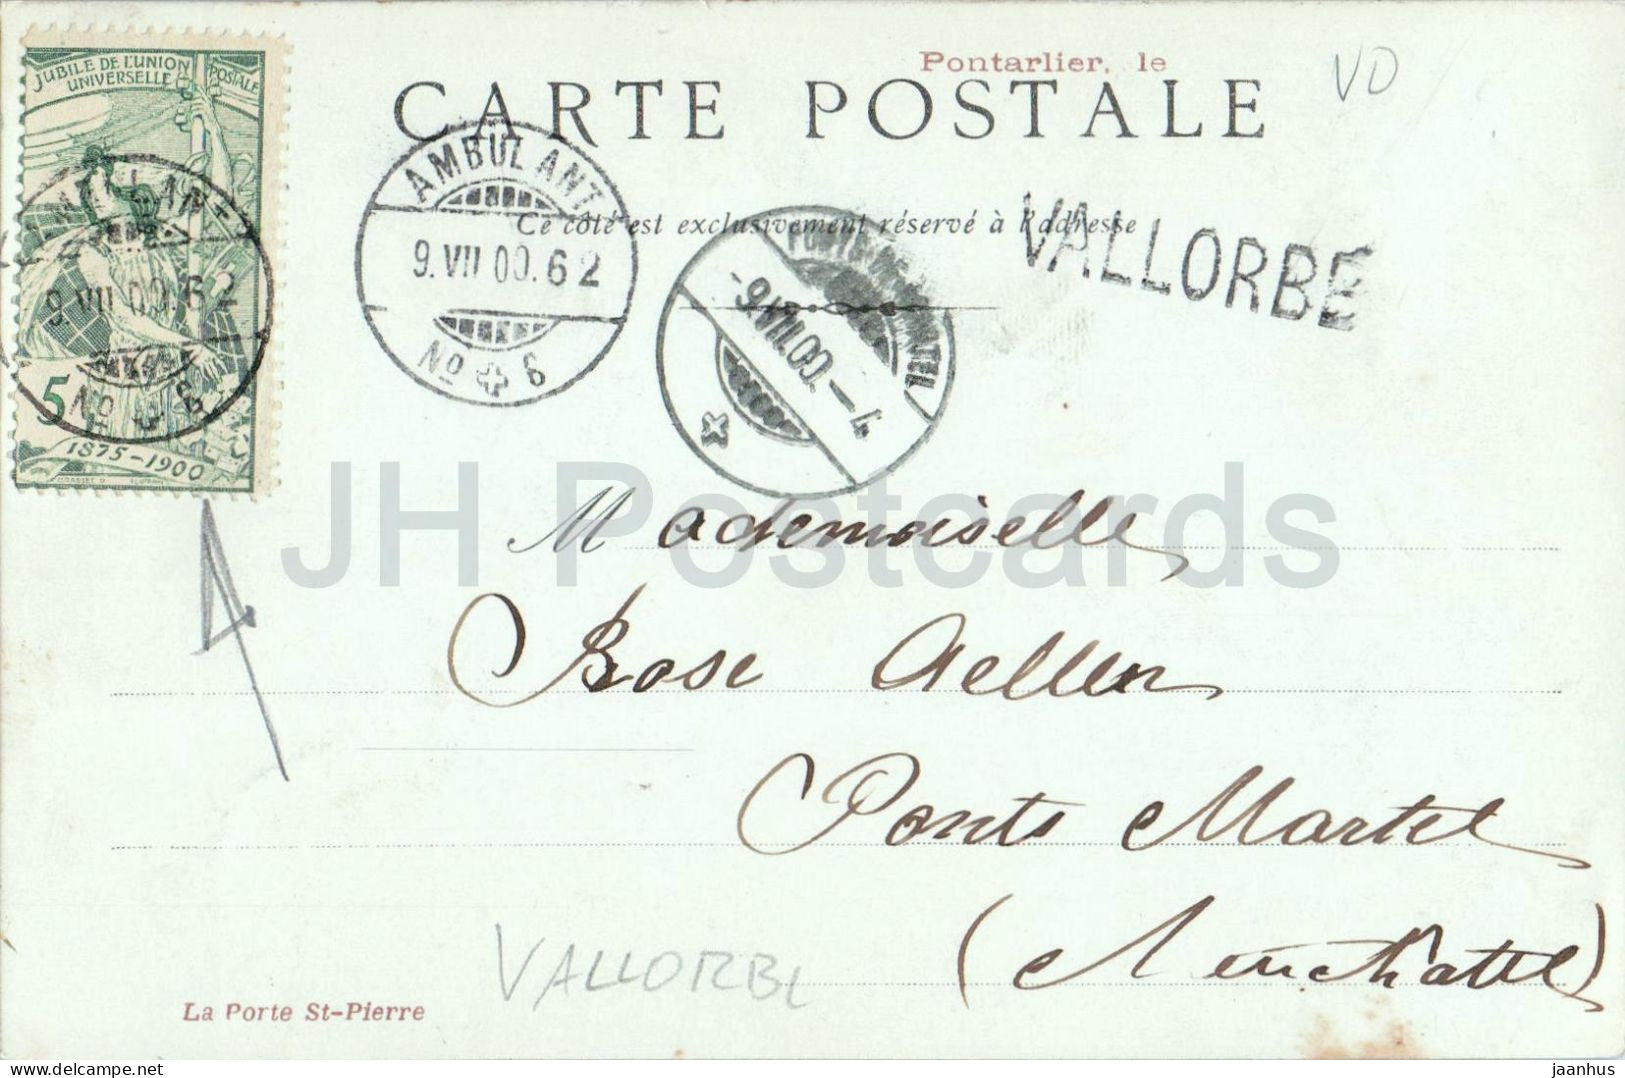 JUBILÉ DE L'UNION
POSTALE
UNIVERSELLE
5
1875-1900
Pontarlier, le
VD
CARTE POSTALE
Ce côté est exclusivement réservé à l'adresse
AMBULANT
9.VII 00.6 2
No 6
AMBULANT
9.VII 00.6 2
No 6
-9.VII.00.-4
VALLORBE
JH Postcards
Mademoiselle
Rose Aellen
Ponts Martel
(Neuchatel)
VALLORBE
La Porte St-Pierre
Delcampe.net
jaanhus